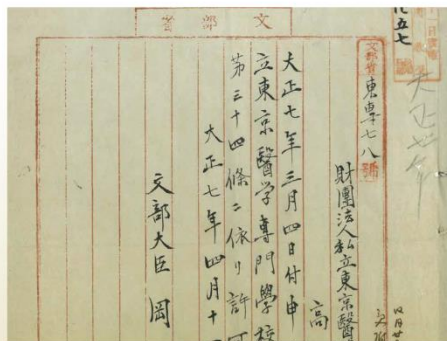 文部省
文部省 東専七八號
財團法人私立東京醫
高
大正七年三月四日付申
立東京醫学專門學校
第三十四條ニ依リ許可
大正七年四月十
文部大臣 岡